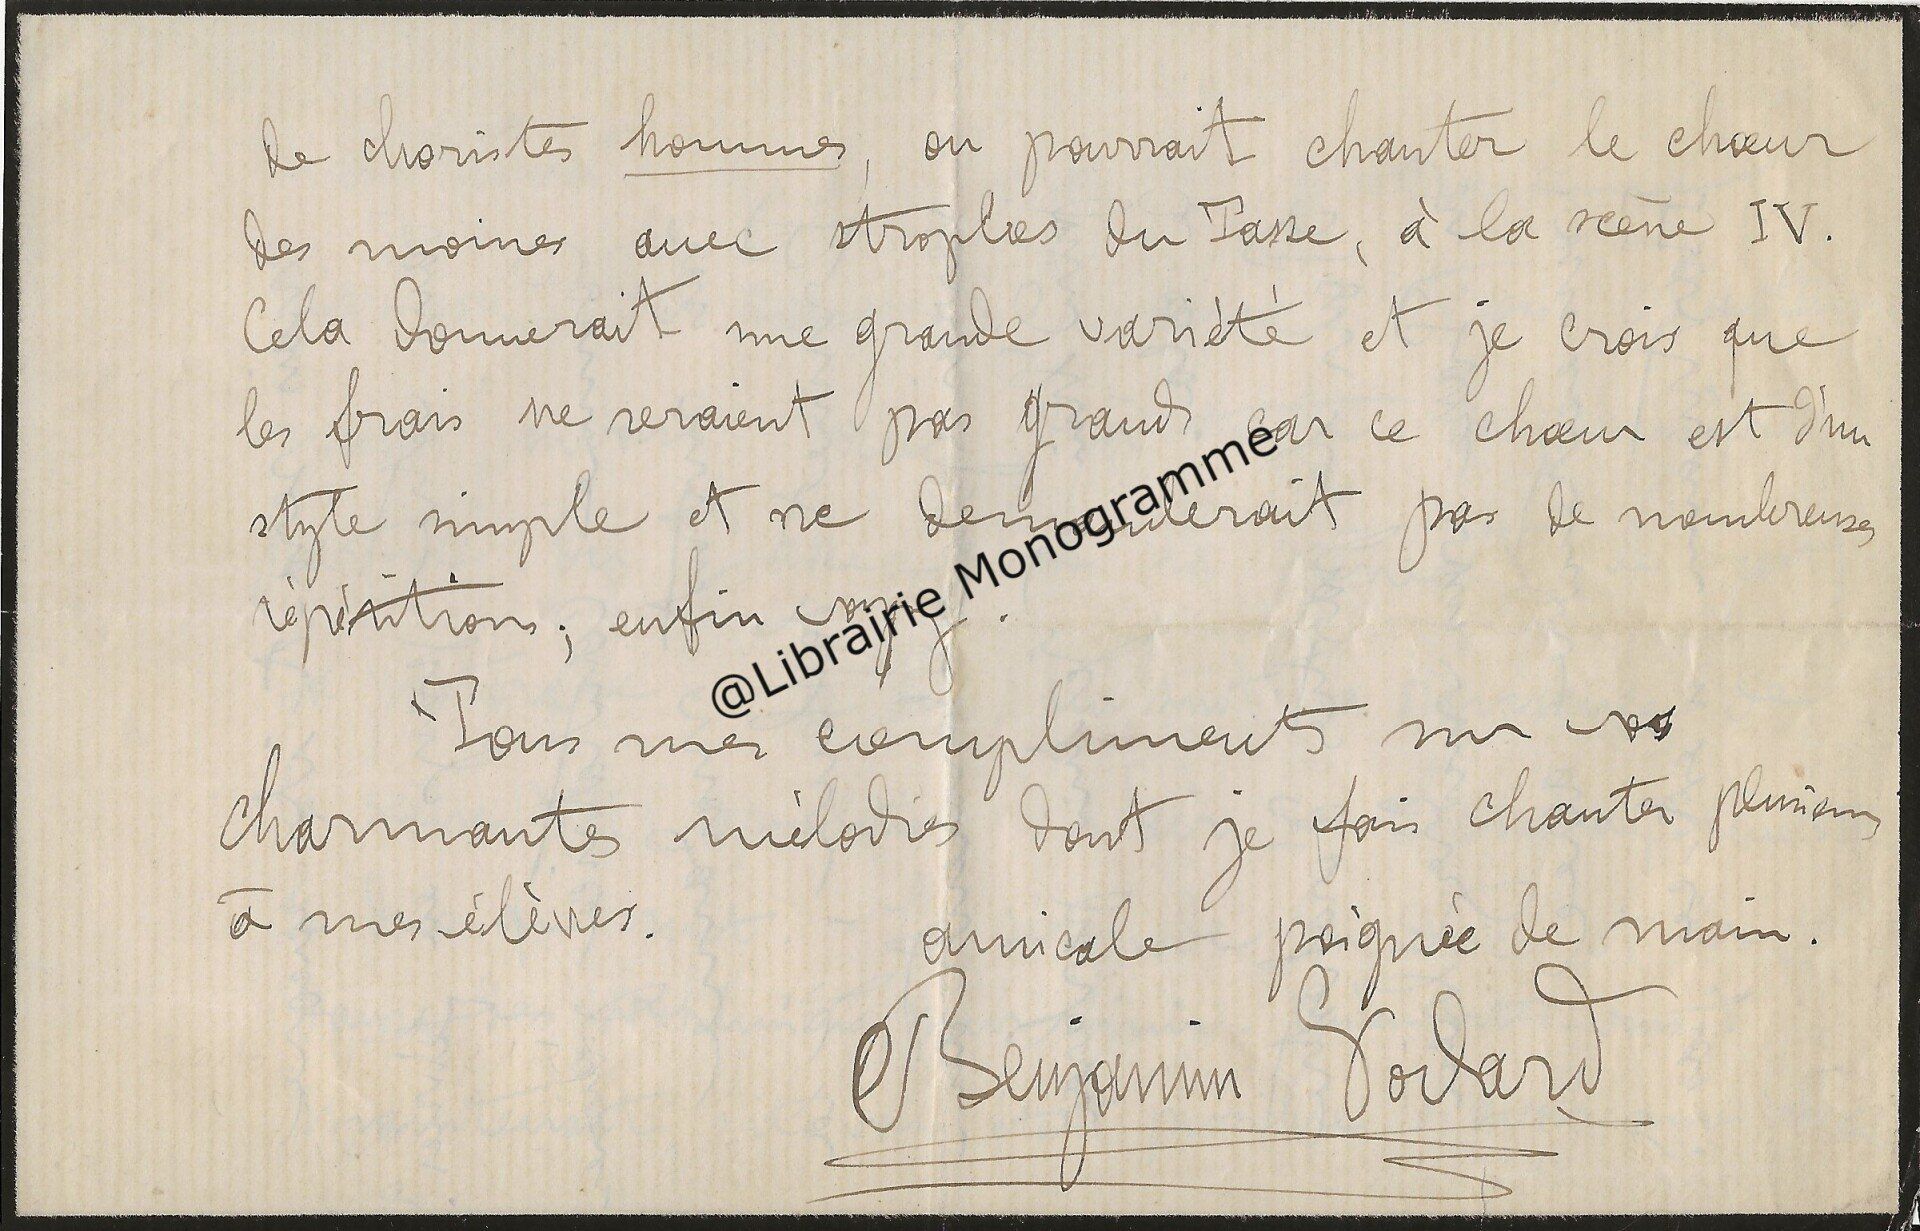 de choristes hommes, on pourrait chanter le chœur
des moines avec strophes du Tasse, à la scène IV.
Cela donnerait une grande variété et je crois que
les frais ne seraient pas grands car ce chœur est d'un
style simple et ne demanderait pas de nombreuses
répétitions; enfin voyez.
Tous mes compliments sur vos
charmantes mélodies dont je fais chanter plusieurs
à mes élèves.
amicale poignée de main.
Benjamin Godard
@Librairie Monogramme